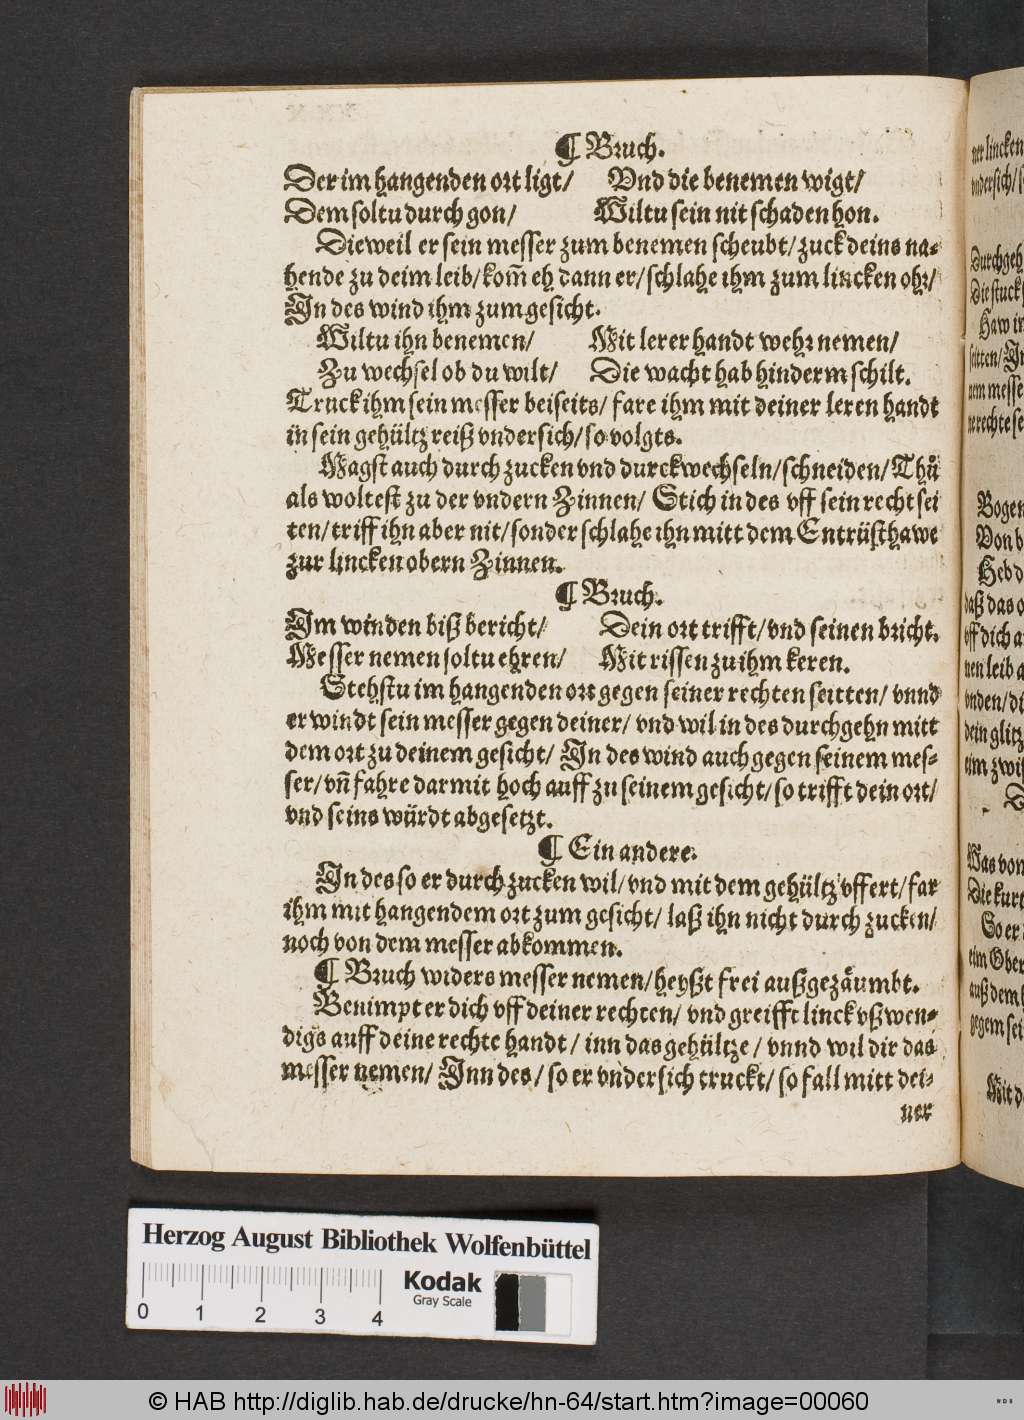 ¶ Bruch.
Der im hangenden ort ligt/ Vnd die benemen wigt/
Dem soltu durch gon/ Wiltu sein nit schaden hon.
Dieweil er sein messer zum benemen scheubt/ zuck deins na-
hende zu deim leib/ kom̄ eh dann er/ schlahe ihm zum lincken ohr/
In des wind ihm zum gesicht.
Wiltu ihn benemen/ Mit lerer handt wehr nemen/
Zu wechsel ob du wilt/ Die wacht hab hinderm schilt.
Truck ihm sein messer beiseits/ fare ihm mit deiner leren handt
in sein gehültz reiß vndersich/ so volgts.
Magst auch durch zucken vnd durckwechseln/ schneiden/ Thů
als woltest zu der vndern Zinnen/ Stich in des vff sein recht sei
ten/ triff ihn aber nit/ sonder schlahe ihn mitt dem Entrüsthawe
zur lincken obern Zinnen.
¶ Bruch.
Im winden biß bericht/ Dein ort trifft/ vnd seinen bricht.
Messer nemen soltu ehren/ Mit rissen zu ihm keren.
Stehstu im hangenden ort gegen seiner rechten seitten/ vnnd
er windt sein messer gegen deiner/ vnd wil in des durchgehn mitt
dem ort zu deinem gesicht/ In des wind auch gegen seinem mes-
ser/ vn̄ fahre darmit hoch auff zu seinem gesicht/ so trifft dein ort/
vnd seins würdt abgesetzt.
¶ Ein andere.
In des so er durch zucken wil/ vnd mit dem gehültz vffert/ far
ihm mit hangendem ort zum gesicht/ laß ihn nicht durch zucken/
noch von dem messer abkommen.
¶ Bruch widers messer nemen/ heyßt frei außgezäumbt.
Benimpt er dich vff deiner rechten/ vnd greifft linck vßwen-
digs auff deine rechte handt/ inn das gehültze/ vnnd wil dir das
messer nemen/ Inn des/ so er vndersich truckt/ so fall mitt dei-
ner
ner lincken
vndersich/
Durchgeh
Die stuck
Haw in
seitten/ In
nem messe
ne rechte se
Bogen
Von b
Heb d
daß das o
vff dich a
nen leib a
vnden/ di
dein glitz
eim zwi
D
Was von
Die kurt
So er
eim Ober
auß dem
gegem sei
Mit d
Herzog August Bibliothek Wolfenbüttel
Kodak
Gray Scale
0 1 2 3 4
© HAB http://diglib.hab.de/drucke/hn-64/start.htm?image=00060